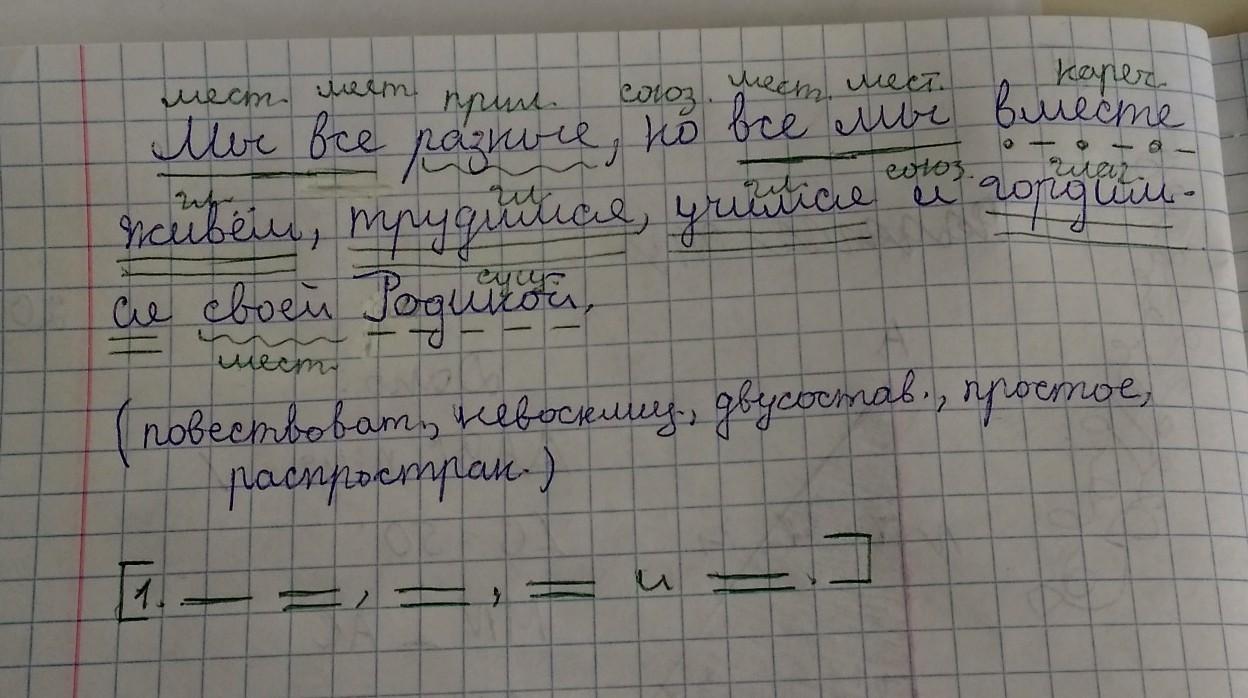 мест. мест. прил. союз. мест. мест. нареч.
Мы все разные, но все мы вместе
гл. гл. гл. союз. глаг.
живём, трудимся, учимся и гордим-
сущ.
ся своей Родиной.
мест.
(повествоват., невосклиц., двусостав., простое,
распростран.)
[1. , , и .]